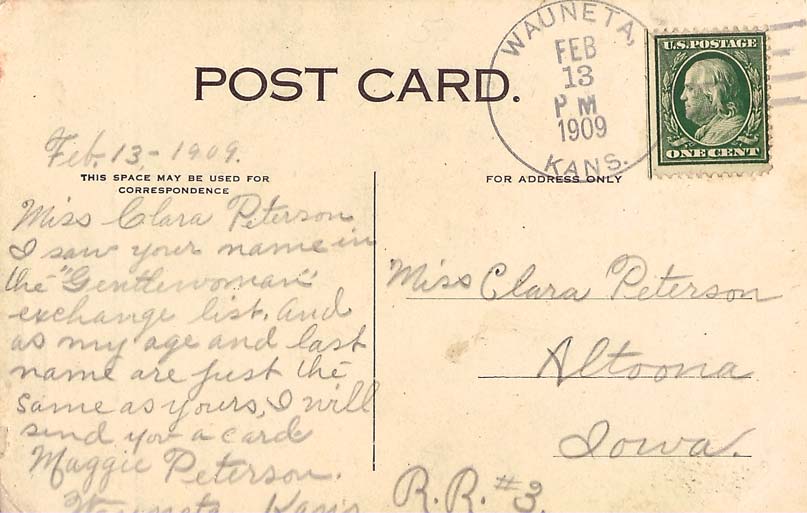 POST CARD.
WAUNETA,
FEB
13
P M
1909
KANS.
U.S. POSTAGE
ONE CENT
Feb. 13, - 1909.
THIS SPACE MAY BE USED FOR
CORRESPONDENCE
FOR ADDRESS ONLY
Miss Clara Peterson
I saw your name in
the "Gentlewoman"
exchange list. And
as my age and last
name are just the
same as yours, I will
send you a card
Maggie Peterson.
Wauneta Kans
Miss Clara Peterson
Altoona
Iowa.
R.R. #3.